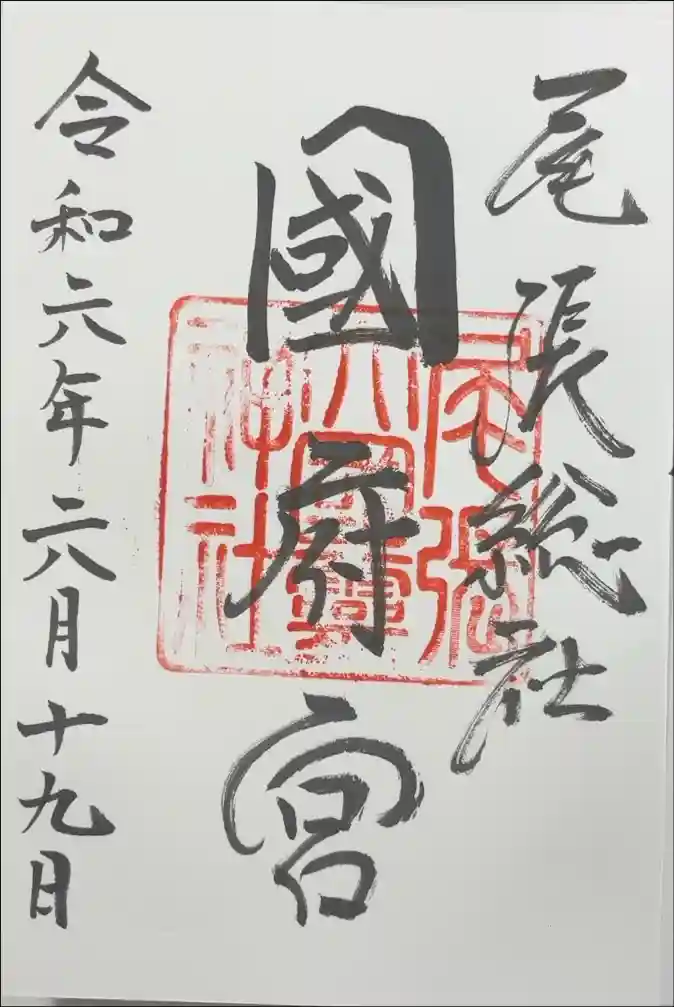 尾張総社
國府宮
令和六年六月十九日
尾張
大國靈
神社